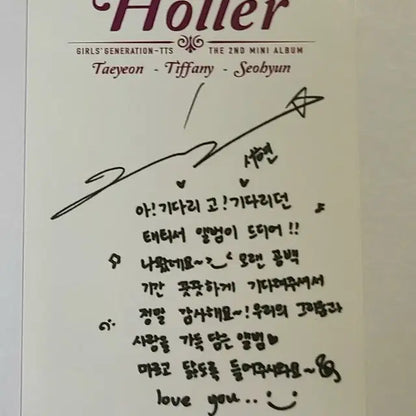 Holler
GIRLS' GENERATION-TTS THE 2ND MINI ALBUM
Taeyeon - Tiffany - Seohyun
서현
아! 기다리 고! 기다리던
태티서 앨범이 드디어!!
나왔네요~ 오랜 공백
기간 꿋꿋하게 기다려주셔서
정말 감사해요~! 우리의 그리움과
사랑을 가득 담은 앨범
마르고 닳도록 들어주시와요~
love you..